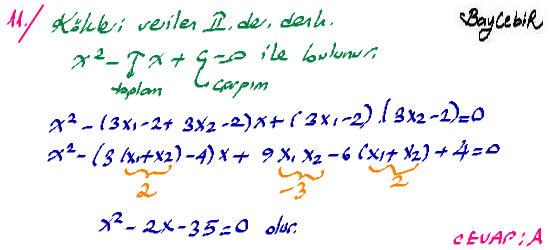 11./ Kökleri verilen II. der. denk. BayCebiR
x² - Tx + Ç = 0 ile bulunur.
toplam çarpım
x² - (3x₁-2 + 3x₂-2)x + (3x₁-2).(3x₂-2)=0
x² - (3(x₁+x₂)-4)x + 9x₁x₂ - 6(x₁+x₂) + 4=0
2 -3 2
x² - 2x - 35 = 0 olur.
CEVAP: A